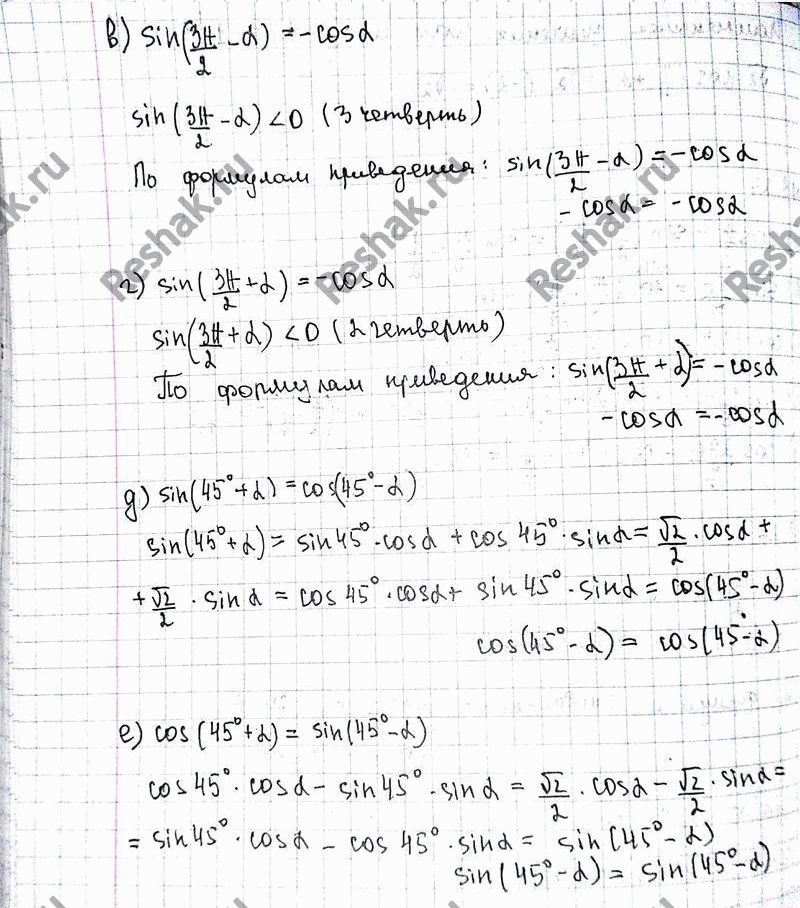 в) sin(3π/2 - α) = -cosα
sin(3π/2 - α) < 0 (3 четверть)
По формулам приведения: sin(3π/2 - α) = -cosα
- cosα = -cosα
г) sin(3π/2 + α) = -cosα
sin(3π/2 + α) < 0 (2 четверть)
По формулам приведения: sin(3π/2 + α) = -cosα
-cosα = -cosα
д) sin(45° + α) = cos(45° - α)
sin(45° + α) = sin45° · cosα + cos 45° · sinα = √2/2 · cosα +
+ √2/2 · sinα = cos 45° · cosα + sin 45° · sinα = cos(45° - α)
cos(45° - α) = cos(45° - α)
е) cos(45° + α) = sin(45° - α)
cos45° · cosα - sin45° · sinα = √2/2 · cosα - √2/2 · sinα =
= sin45° · cosα - cos 45° · sinα = sin(45° - α)
sin(45° - α) = sin(45° - α)
Reshak.ru
Reshak.ru
Reshak.ru
Reshak.ru